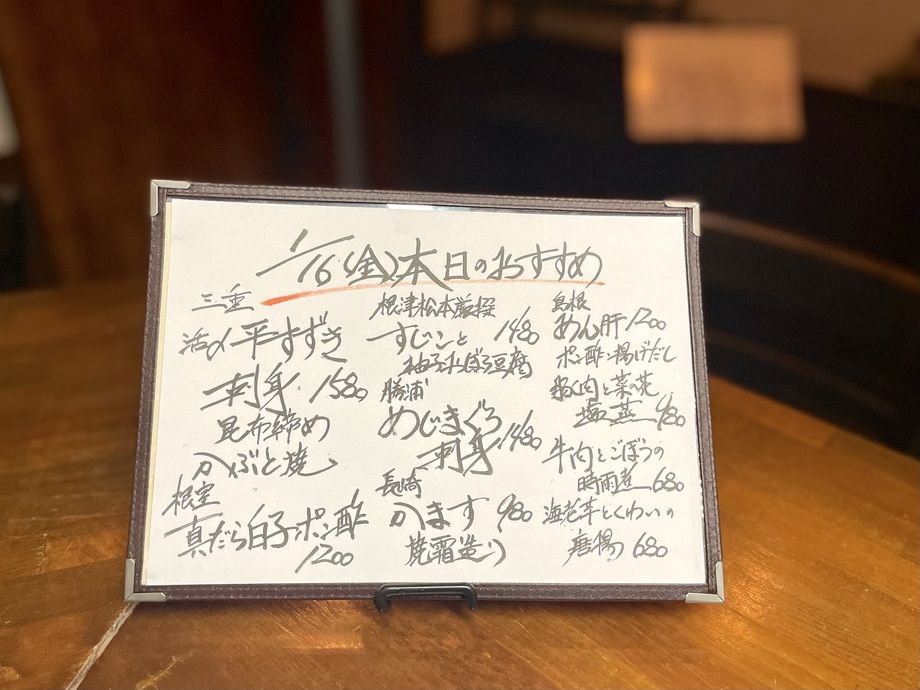 1/16(金)本日のおすすめ
三重
活〆平すずき
刺身 1580
昆布締め
かぶと焼
根室
真だら白子ポン酢
1200
根津松本厳撰
すじこと 1480
柚子おぼろ豆腐
勝浦
めじまぐろ
刺身 1480
長崎
かます 980
焼霜造り
島根
あん肝 1200
ポン酢・揚げだし
豚肉と菜の花
塩蒸 980
牛肉とごぼうの
時雨煮 680
海老芋とくわいの
唐揚 680